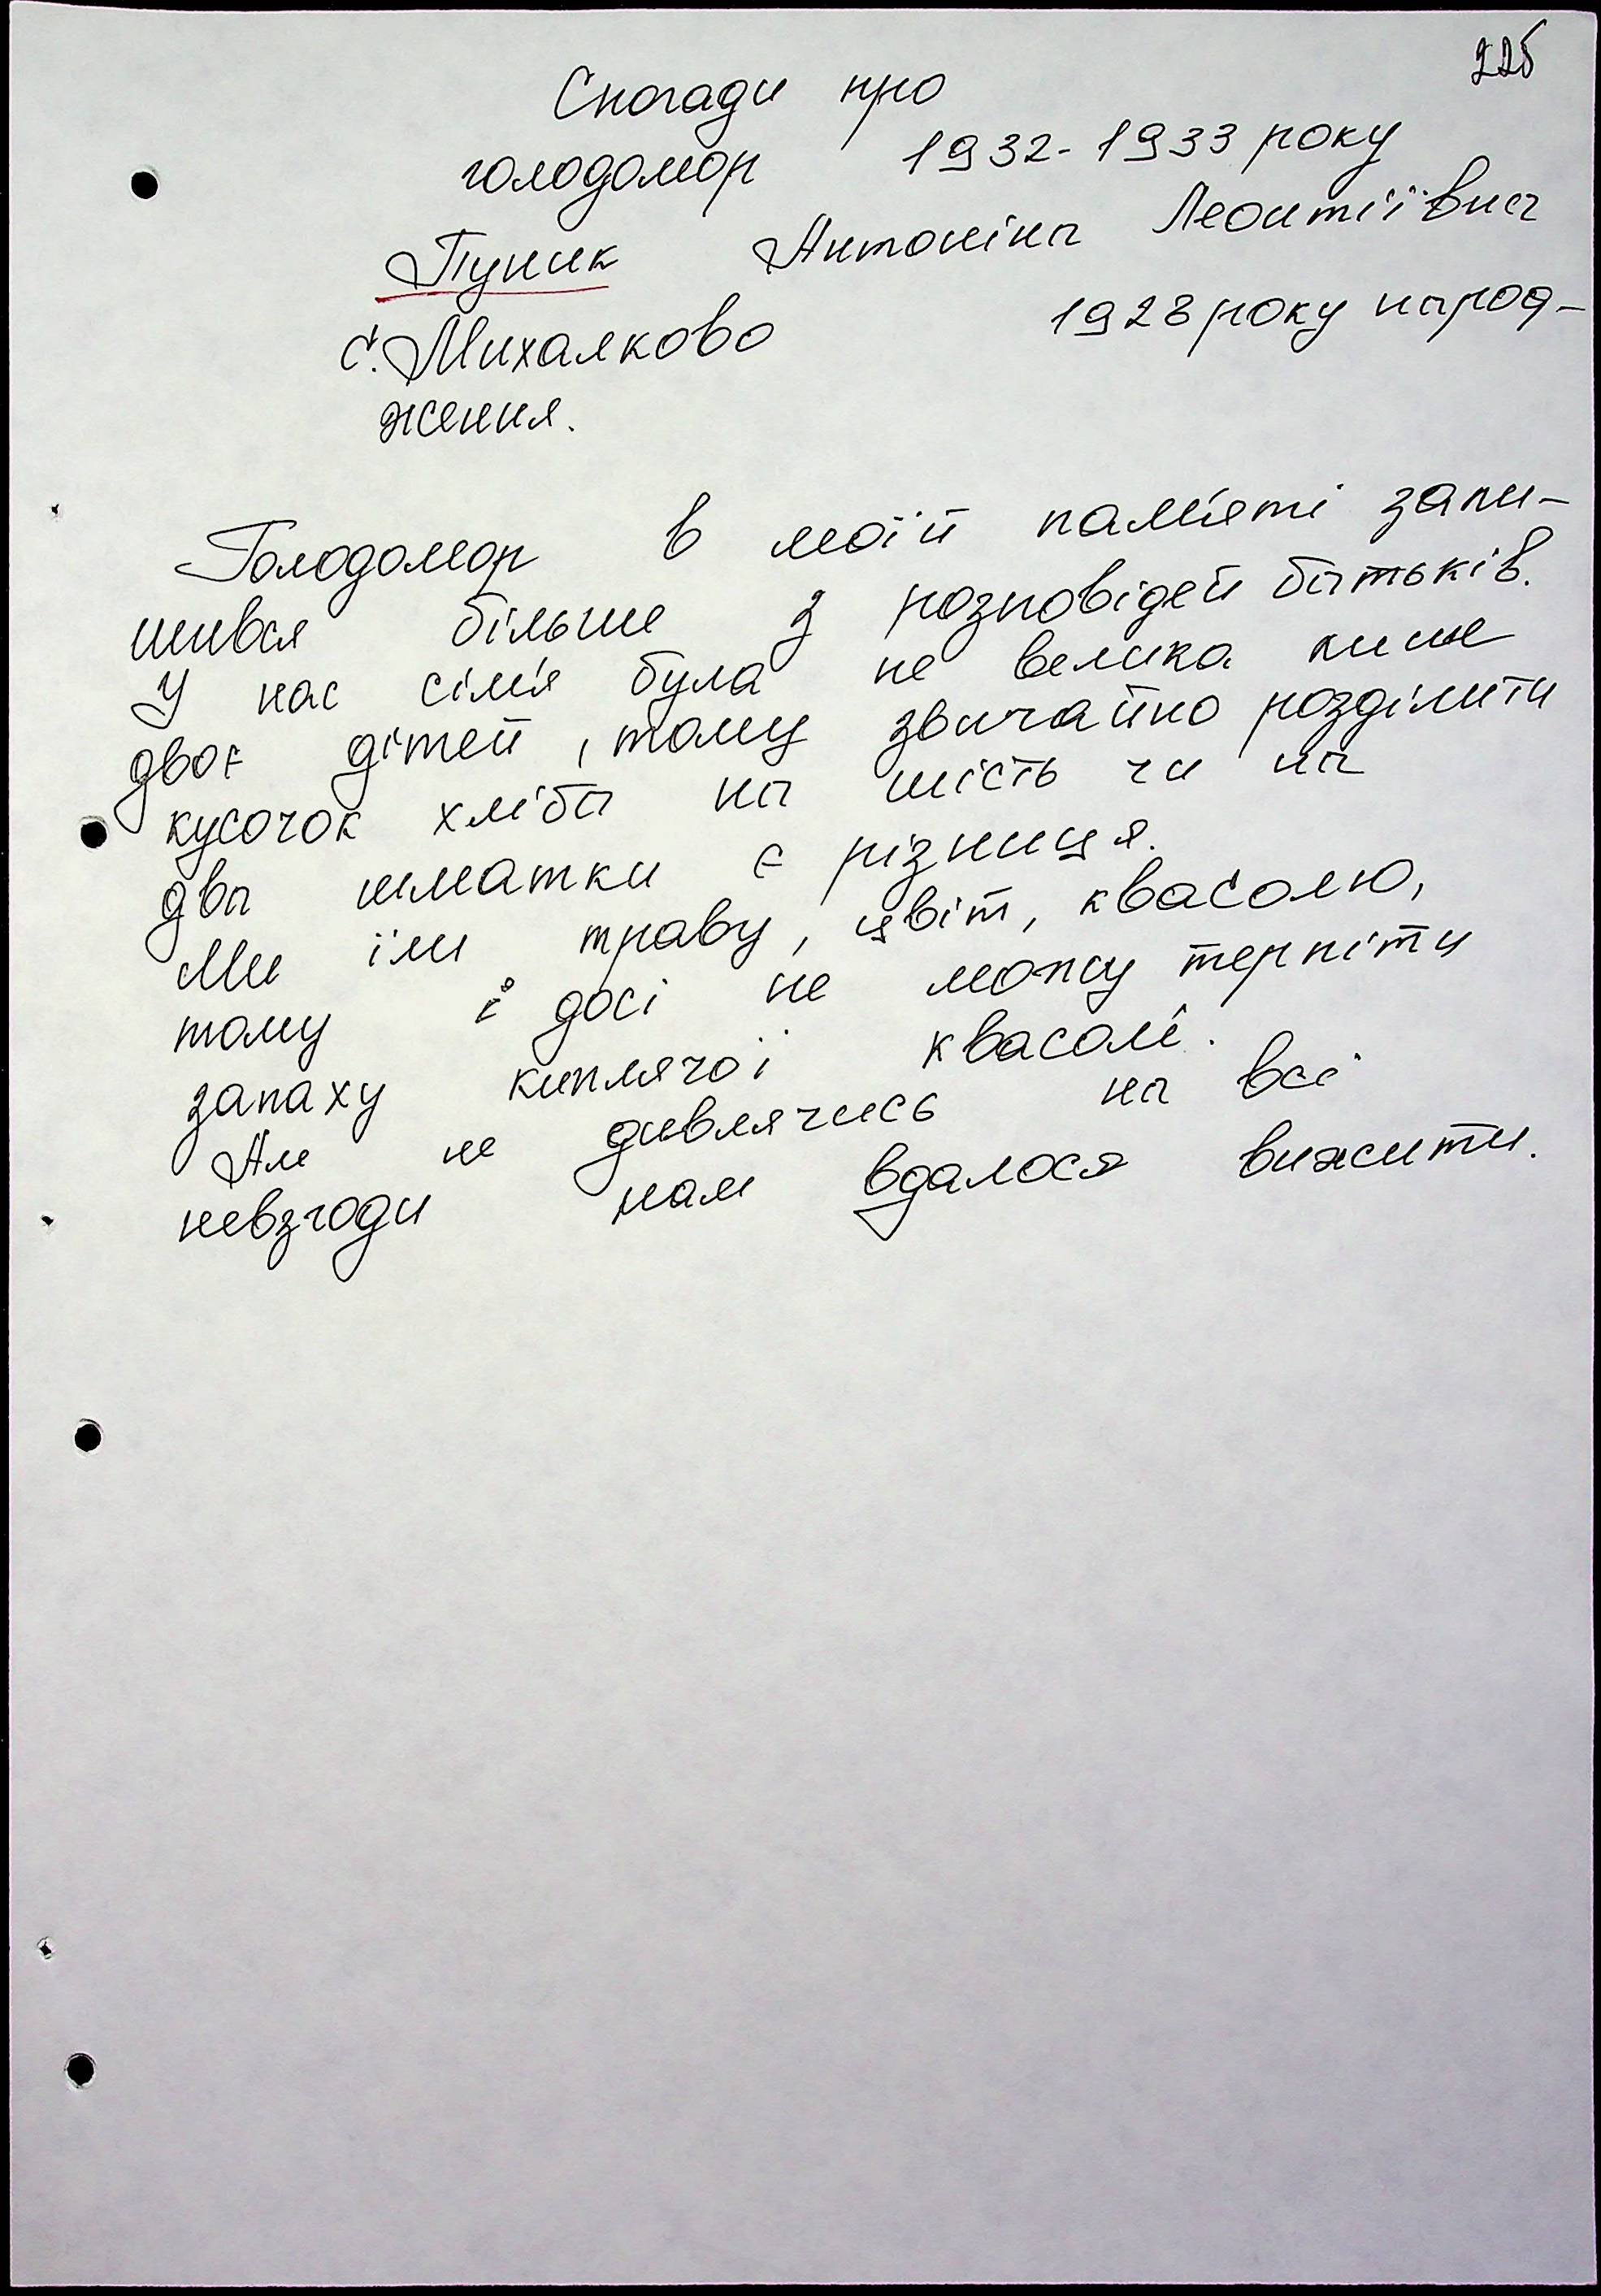 225
Спогади про
голодомор 1932-1933 року
Пуник Антоніна Леонтіївна
с. Михалково 1928 року народ-
ження.
Голодомор в моїй пам'яті запи-
шився більше з розповідей батьків.
У нас сім'я була не велика лише
двоє дітей, тому звичайно розділити
кусочок хліба на шість чи на
два шматки є різниця.
Ми їли траву, цвіт, квасолю,
тому і досі не можу терпіти
запаху киплячої квасолі.
Але не дивлячись на всі
невзгоди нам вдалося вижити.